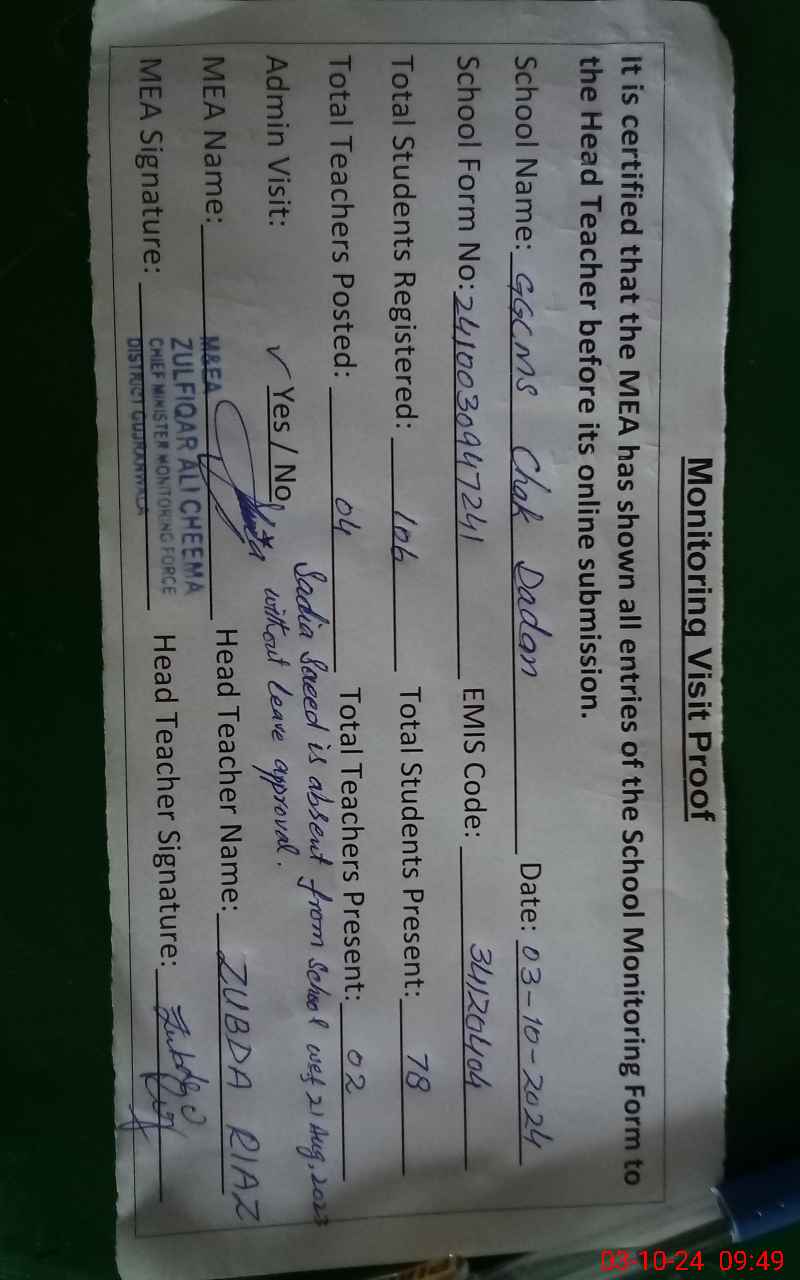 Monitoring Visit Proof
It is certified that the MEA has shown all entries of the School Monitoring Form to
the Head Teacher before its online submission.
School Name: GGCMS Chak Dadan Date: 03-10-2024
School Form No: 2410030947241 EMIS Code: 34120404
Total Students Registered: 106 Total Students Present: 78
Total Teachers Posted: 04 Total Teachers Present: 02
Sadia Saeed is absent from School wef 21 Aug, 2023
Admin Visit: ✓ Yes / No without leave approval.
MEA Name: Head Teacher Name: ZUBDA RIAZ
M&EA
ZULFIQAR ALI CHEEMA
CHIEF MINISTER MONITORING FORCE
DISTRICT GUJRANWALA
MEA Signature: Head Teacher Signature:
03-10-24 09:49